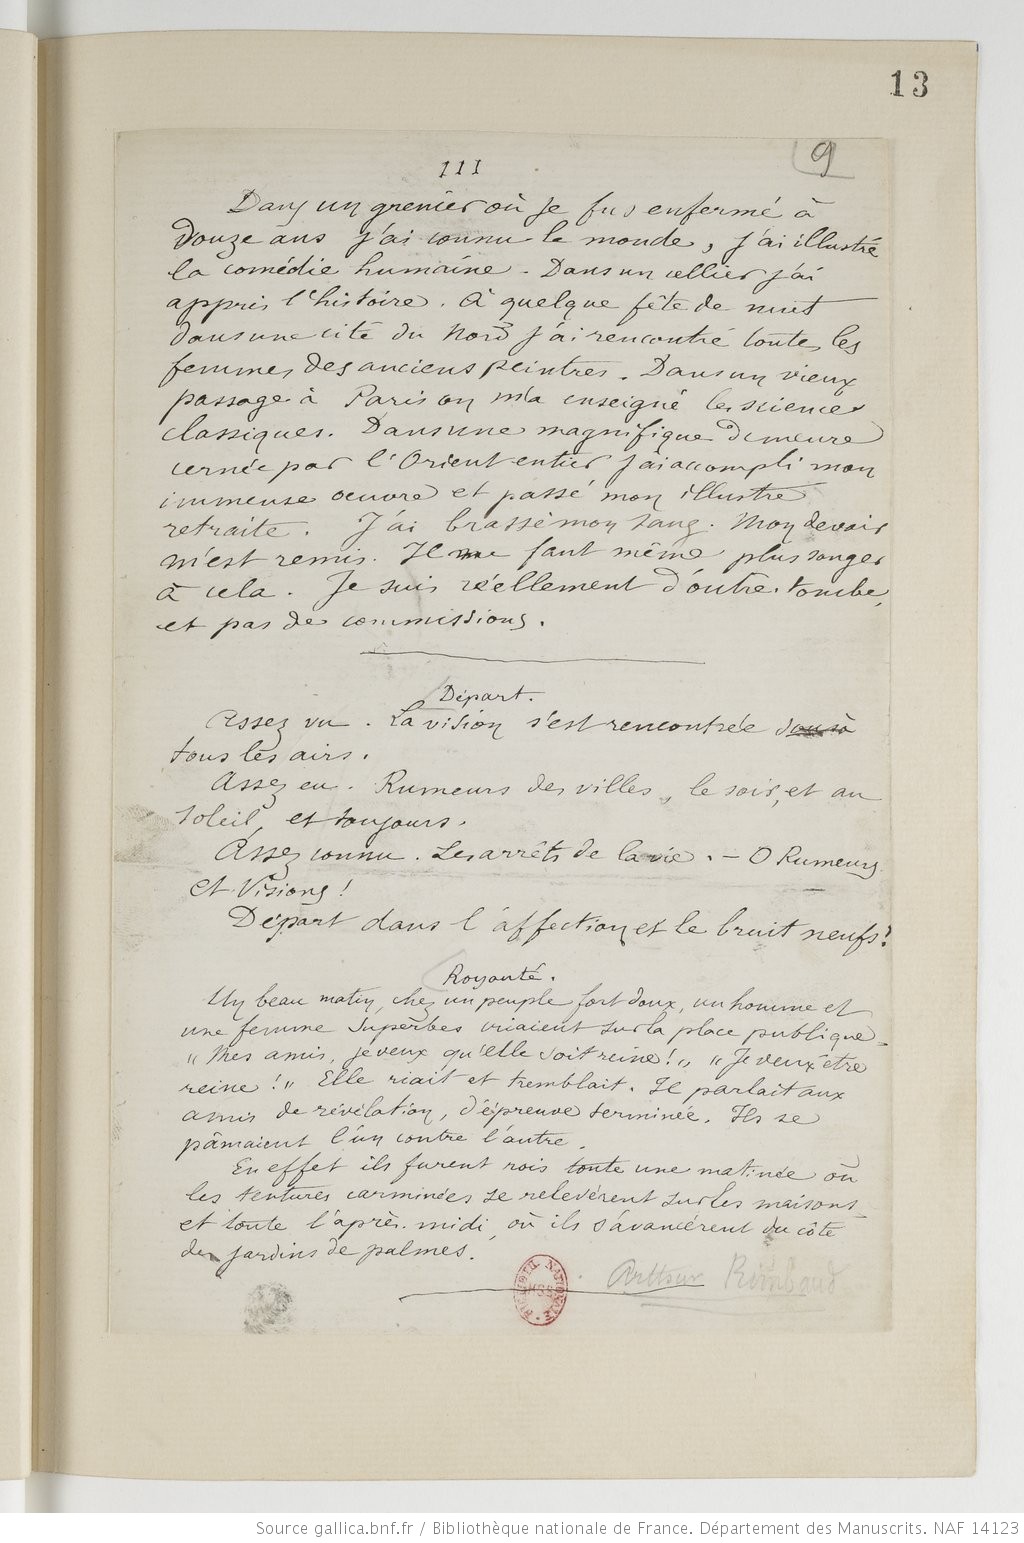 13
9
III
Dans un grenier où je fus enfermé à
douze ans j'ai connu le monde, j'ai illustré
la comédie humaine. Dans un cellier j'ai
appris l'histoire. À quelque fête de nuit
dans une cité du Nord j'ai rencontré toutes les
femmes des anciens peintres. Dans un vieux
passage à Paris on m'a enseigné les sciences
classiques. Dans une magnifique demeure
cernée par l'Orient entier j'ai accompli mon
immense oeuvre et passé mon illustre
retraite. J'ai brassé mon sang. Mon devoir
m'est remis. Il ne faut même plus songer
à cela. Je suis réellement d'outre-tombe,
et pas de commissions.
Départ.
Assez vu. La vision s'est rencontrée à
tous les airs.
Assez eu. Rumeurs des villes, le soir, et au
soleil, et toujours.
Assez connu. Les arrêts de la vie. — O Rumeurs
et Visions!
Départ dans l'affection et le bruit neufs!
Royauté.
Un beau matin, chez un peuple fort doux, un homme et
une femme superbes criaient sur la place publique
"Mes amis, je veux qu'elle soit reine!" "Je veux être
reine!" Elle riait et tremblait. Il parlait aux
amis de révélation, d'épreuve terminée. Ils se
pâmaient l'un contre l'autre.
En effet ils furent rois toute une matinée où
les tentures carminées se relevèrent sur les maisons
et toute l'après-midi, où ils s'avancèrent du côté
des jardins de palmes.
Arthur Rimbaud
BIBLIOTH. NATIONALE
MSS
Source gallica.bnf.fr / Bibliothèque nationale de France. Département des Manuscrits. NAF 14123